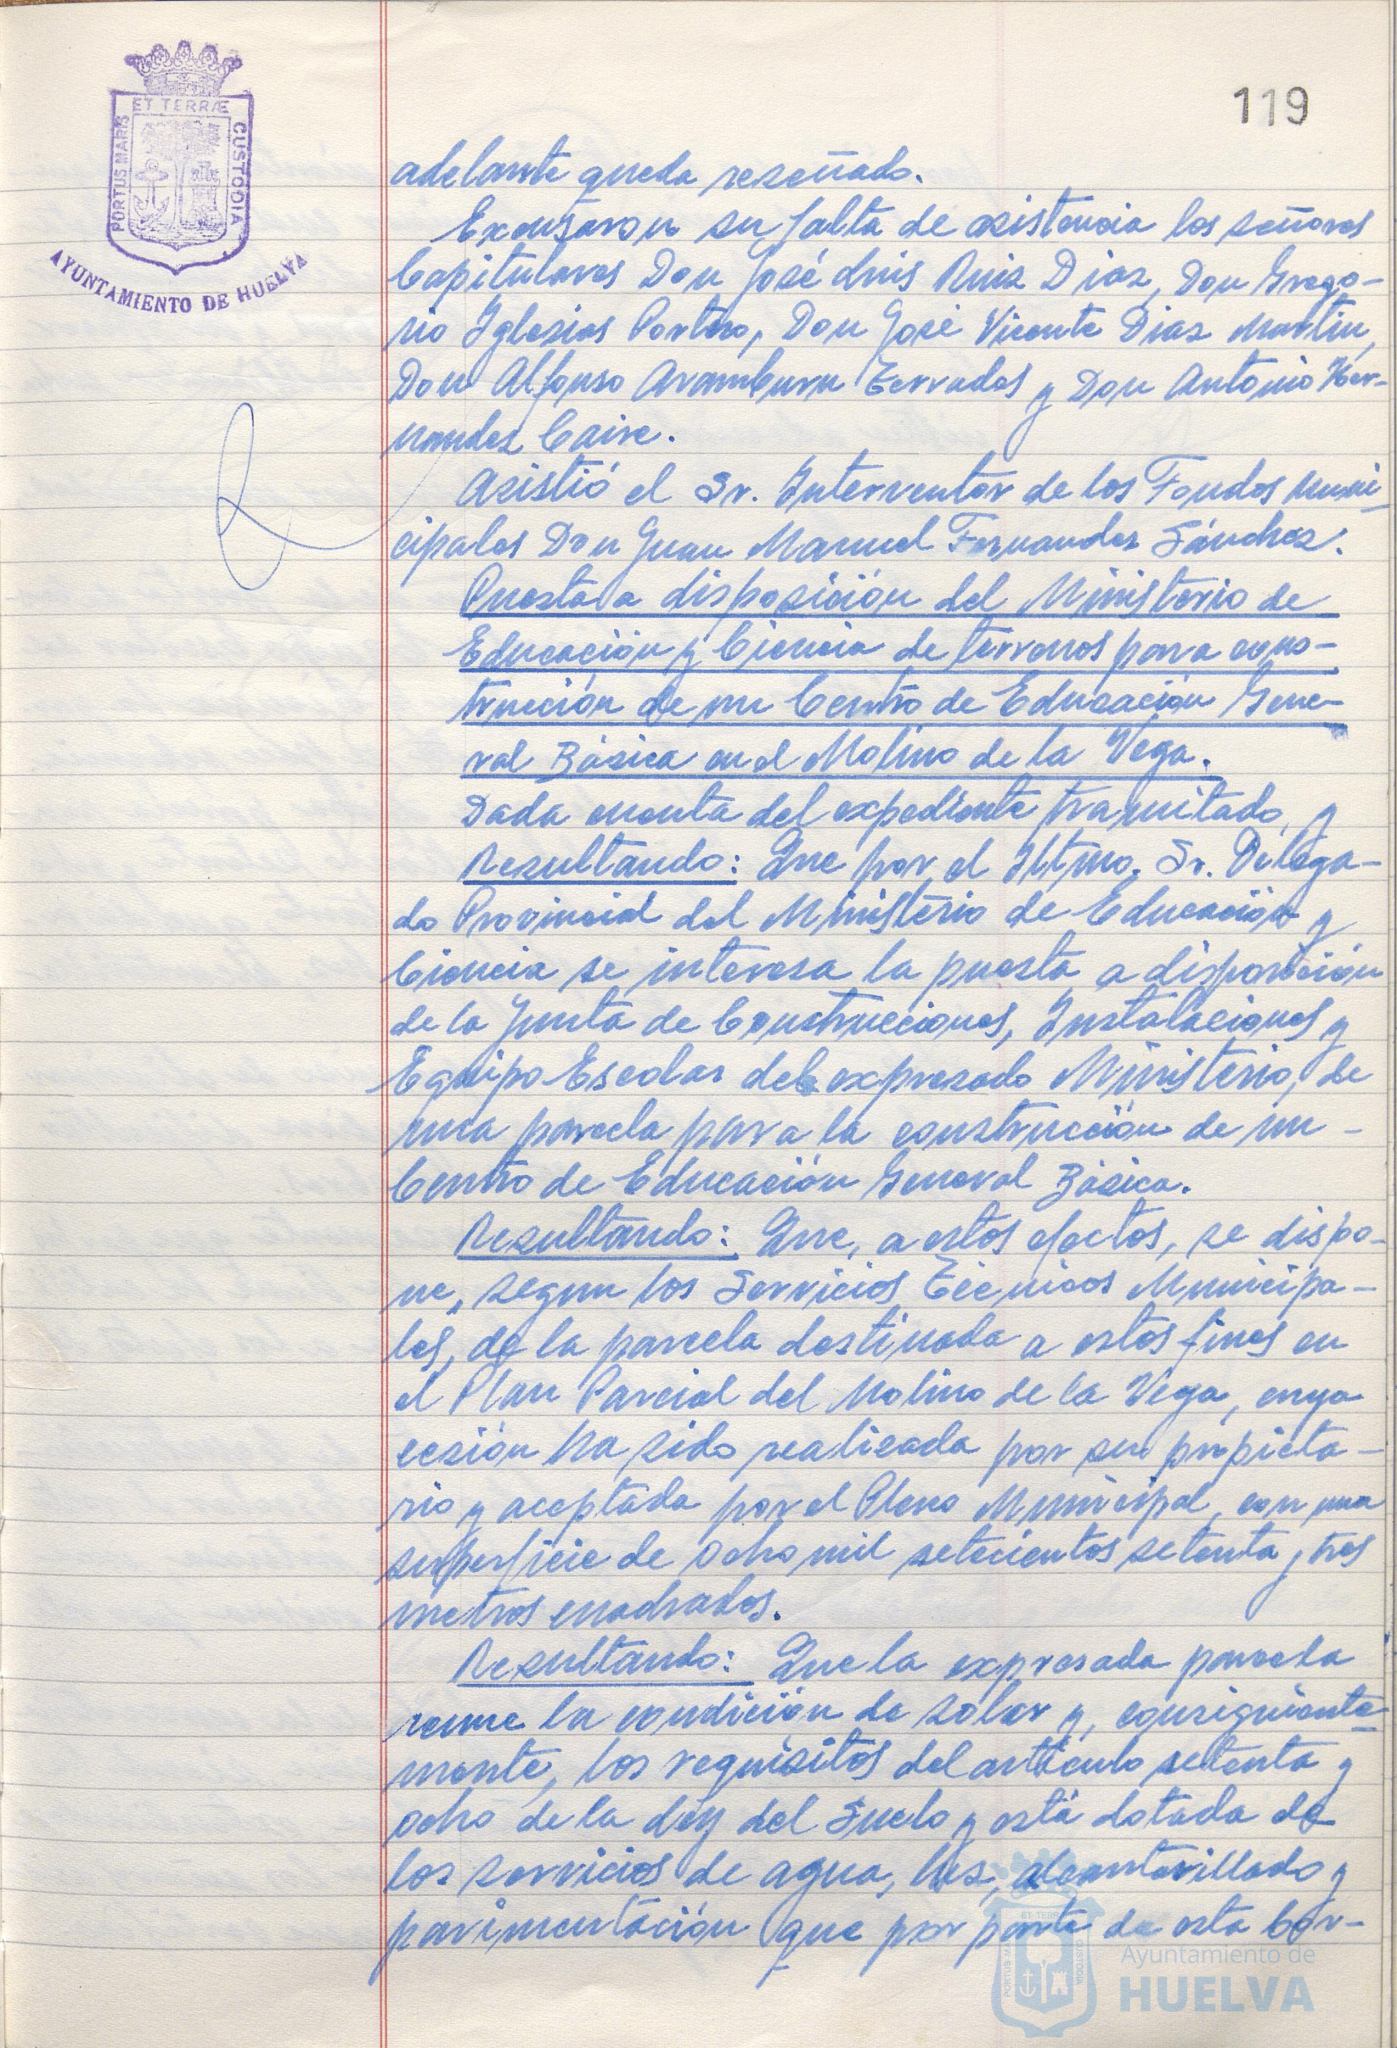 119
ET TERRÆ
PORTUS MARIS
CUSTODIA
AYUNTAMIENTO DE HUELVA
adelante queda reseñado.
Excusaron su falta de asistencia los señores
Capitulares Don José Luis Ruiz Diaz, Don Grego-
rio Iglesias Portero, Don José Vicente Diaz Martin,
Don Alfonso Aramburu Terrades y Don Antonio Her-
nandez Caire.
Asistió el Sr. Interventor de los Fondos Muni-
cipales Don Juan Manuel Fernandez Sánchez.
Puesta a disposición del Ministerio de
Educación y Ciencia de terrenos para cons-
trucción de un Centro de Educación Gene-
ral Básica en el Molino de la Vega.
Dada cuenta del expediente tramitado, y
Resultando: Que por el Iltmo. Sr. Delega-
do Provincial del Ministerio de Educación y
Ciencia se interesa la puesta a disposición
de la Junta de Construcciones, Instalaciones y
Equipo Escolar del expresado Ministerio, de
una parcela para la construcción de un -
Centro de Educación General Básica.
Resultando: Que, a estos efectos, se dispo-
ne, segun los Servicios Técnicos Municipa-
les, de la parcela destinada a estos fines en
el Plan Parcial del Molino de la Vega, cuya
cesión ha sido realizada por su propieta-
rio y aceptada por el Pleno Municipal, con una
superficie de ocho mil setecientos setenta y tres
metros cuadrados.
Resultando: Que la expresada parcela
reune la condición de solar y, consiguiente-
mente, los requisitos del artículo setenta y
ocho de la Ley del Suelo y está dotada de
los servicios de agua, luz, alcantarillado y
pavimentación que por parte de esta Cor-
Ayuntamiento de
HUELVA